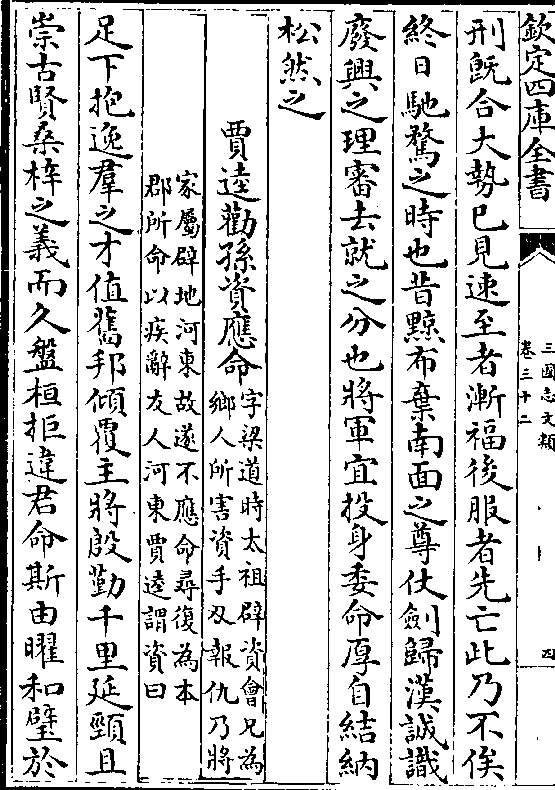 欽定四庫全書
三國志文類
卷三十二
四
刑既合大勢已見速至者漸福後服者先亡此乃不俟
終日馳騖之時也昔黥布棄南面之尊仗劍歸漢誠識
廢興之理審去就之分也將軍宜投身委命厚自結納
松然之
賈逵勸孫資應命
字梁道時太祖辟資會兄為
鄉人所害資手刃報仇乃將
家屬辟地河東故遂不應命尋復為本
郡所命以疾辭友人河東賈逵謂資曰
足下抱逸羣之才值舊邦傾覆主將殷勤千里延頸且
崇古賢桑梓之義而久盤桓拒違君命斯由曜和璧於